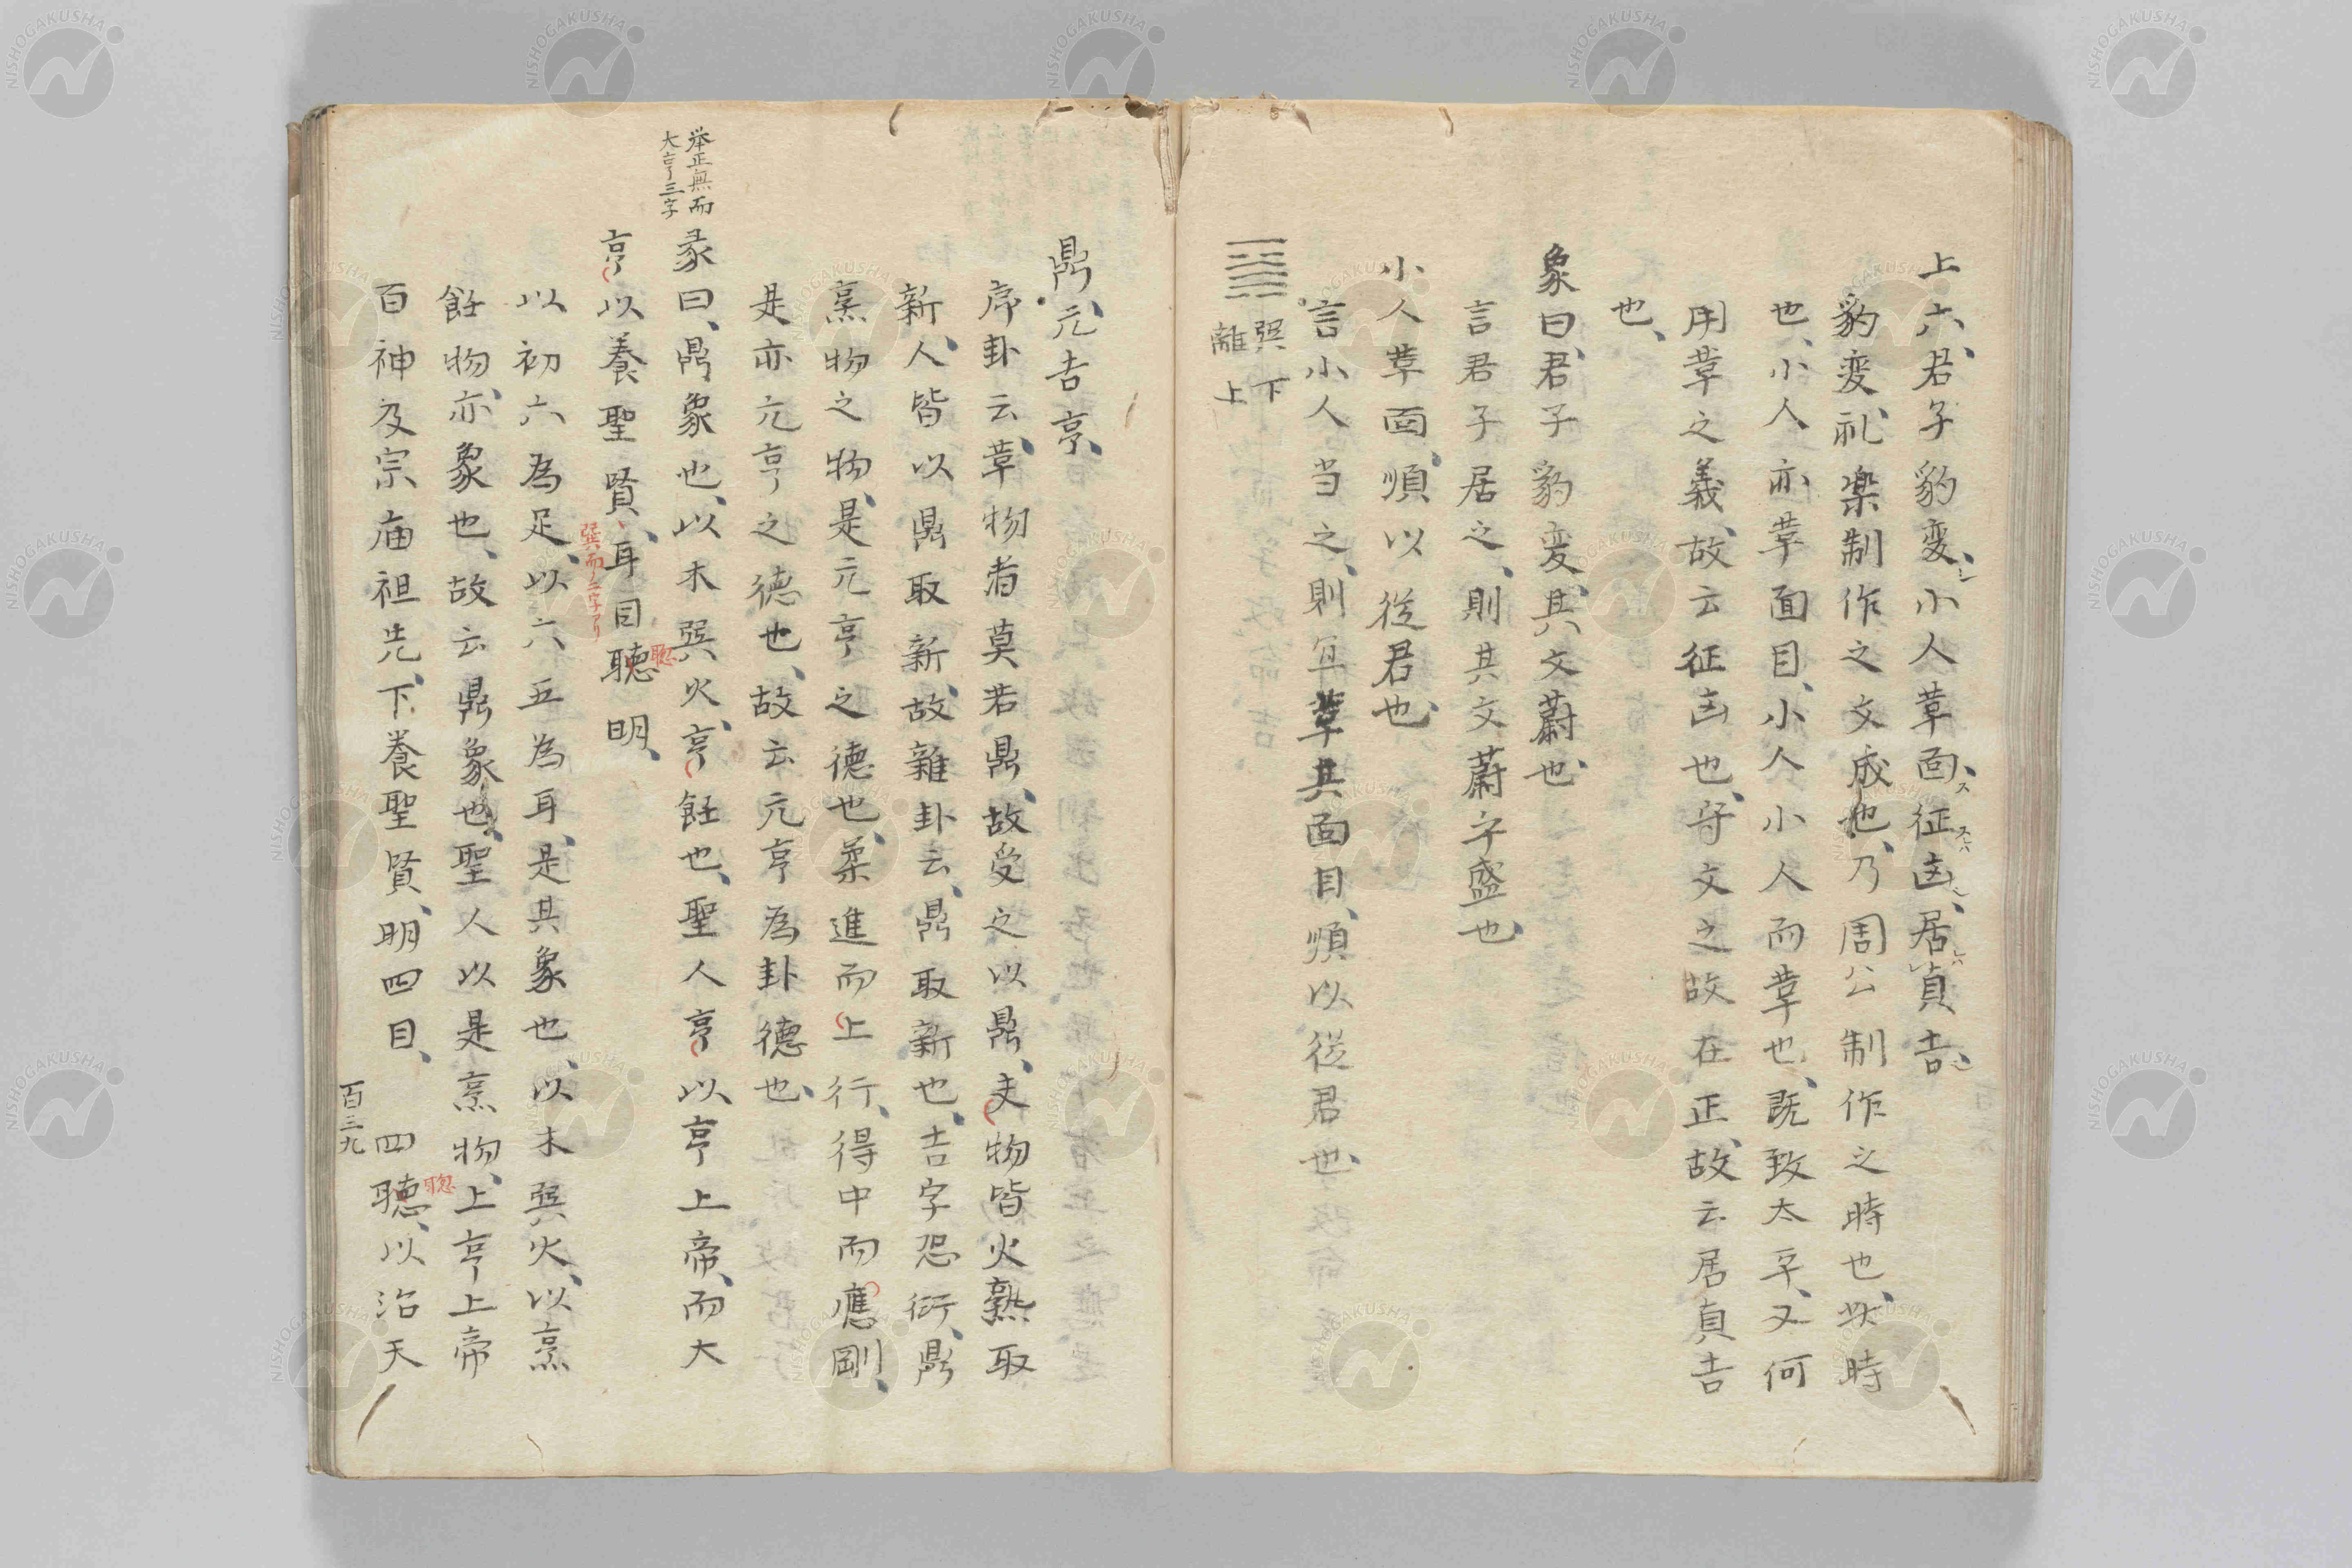 上六、君子豹変、小人革面、征凶、居貞吉、
豹変、礼楽制作之文成也、乃周公制作之時也、此時
也、小人亦革面目、小人小人而革也、既致太平、又何
用革之義、故云征凶也、守文之故在正、故云居貞吉
也、
象曰、君子豹変、其文蔚也、
言君子居之、則其文蔚字盛也、
小人革面、順以從君也、
言小人当之、則宜革其面目、順以從君也、
䷱ 巽下
離上
鼎、元吉、亨、
序卦云、革物者莫若鼎、故受之以鼎、夫物皆火熟取
新、人皆以鼎取新、故雜卦云、鼎取新也、吉字恐衍、鼎
烹物之物、是元亨之德也、柔進而上行、得中而應剛、
是亦元亨之德也、故云元亨為卦德也、
举正無而
大亨三字
彖曰、鼎象也、以木巽火、亨飪也、聖人亨以亨上帝、而大
亨以養聖賢、耳目聴明、
巽而ノ二字アリ
聡
以初六為足、以六五為耳、是其象也、以木巽火、以烹
飪物、亦象也、故云鼎象也、聖人以是烹物、上亨上帝
百神及宗庙祖先、下養聖賢、明四目、四聴、以治天
聡
百三九
NISHOGAKUSHA